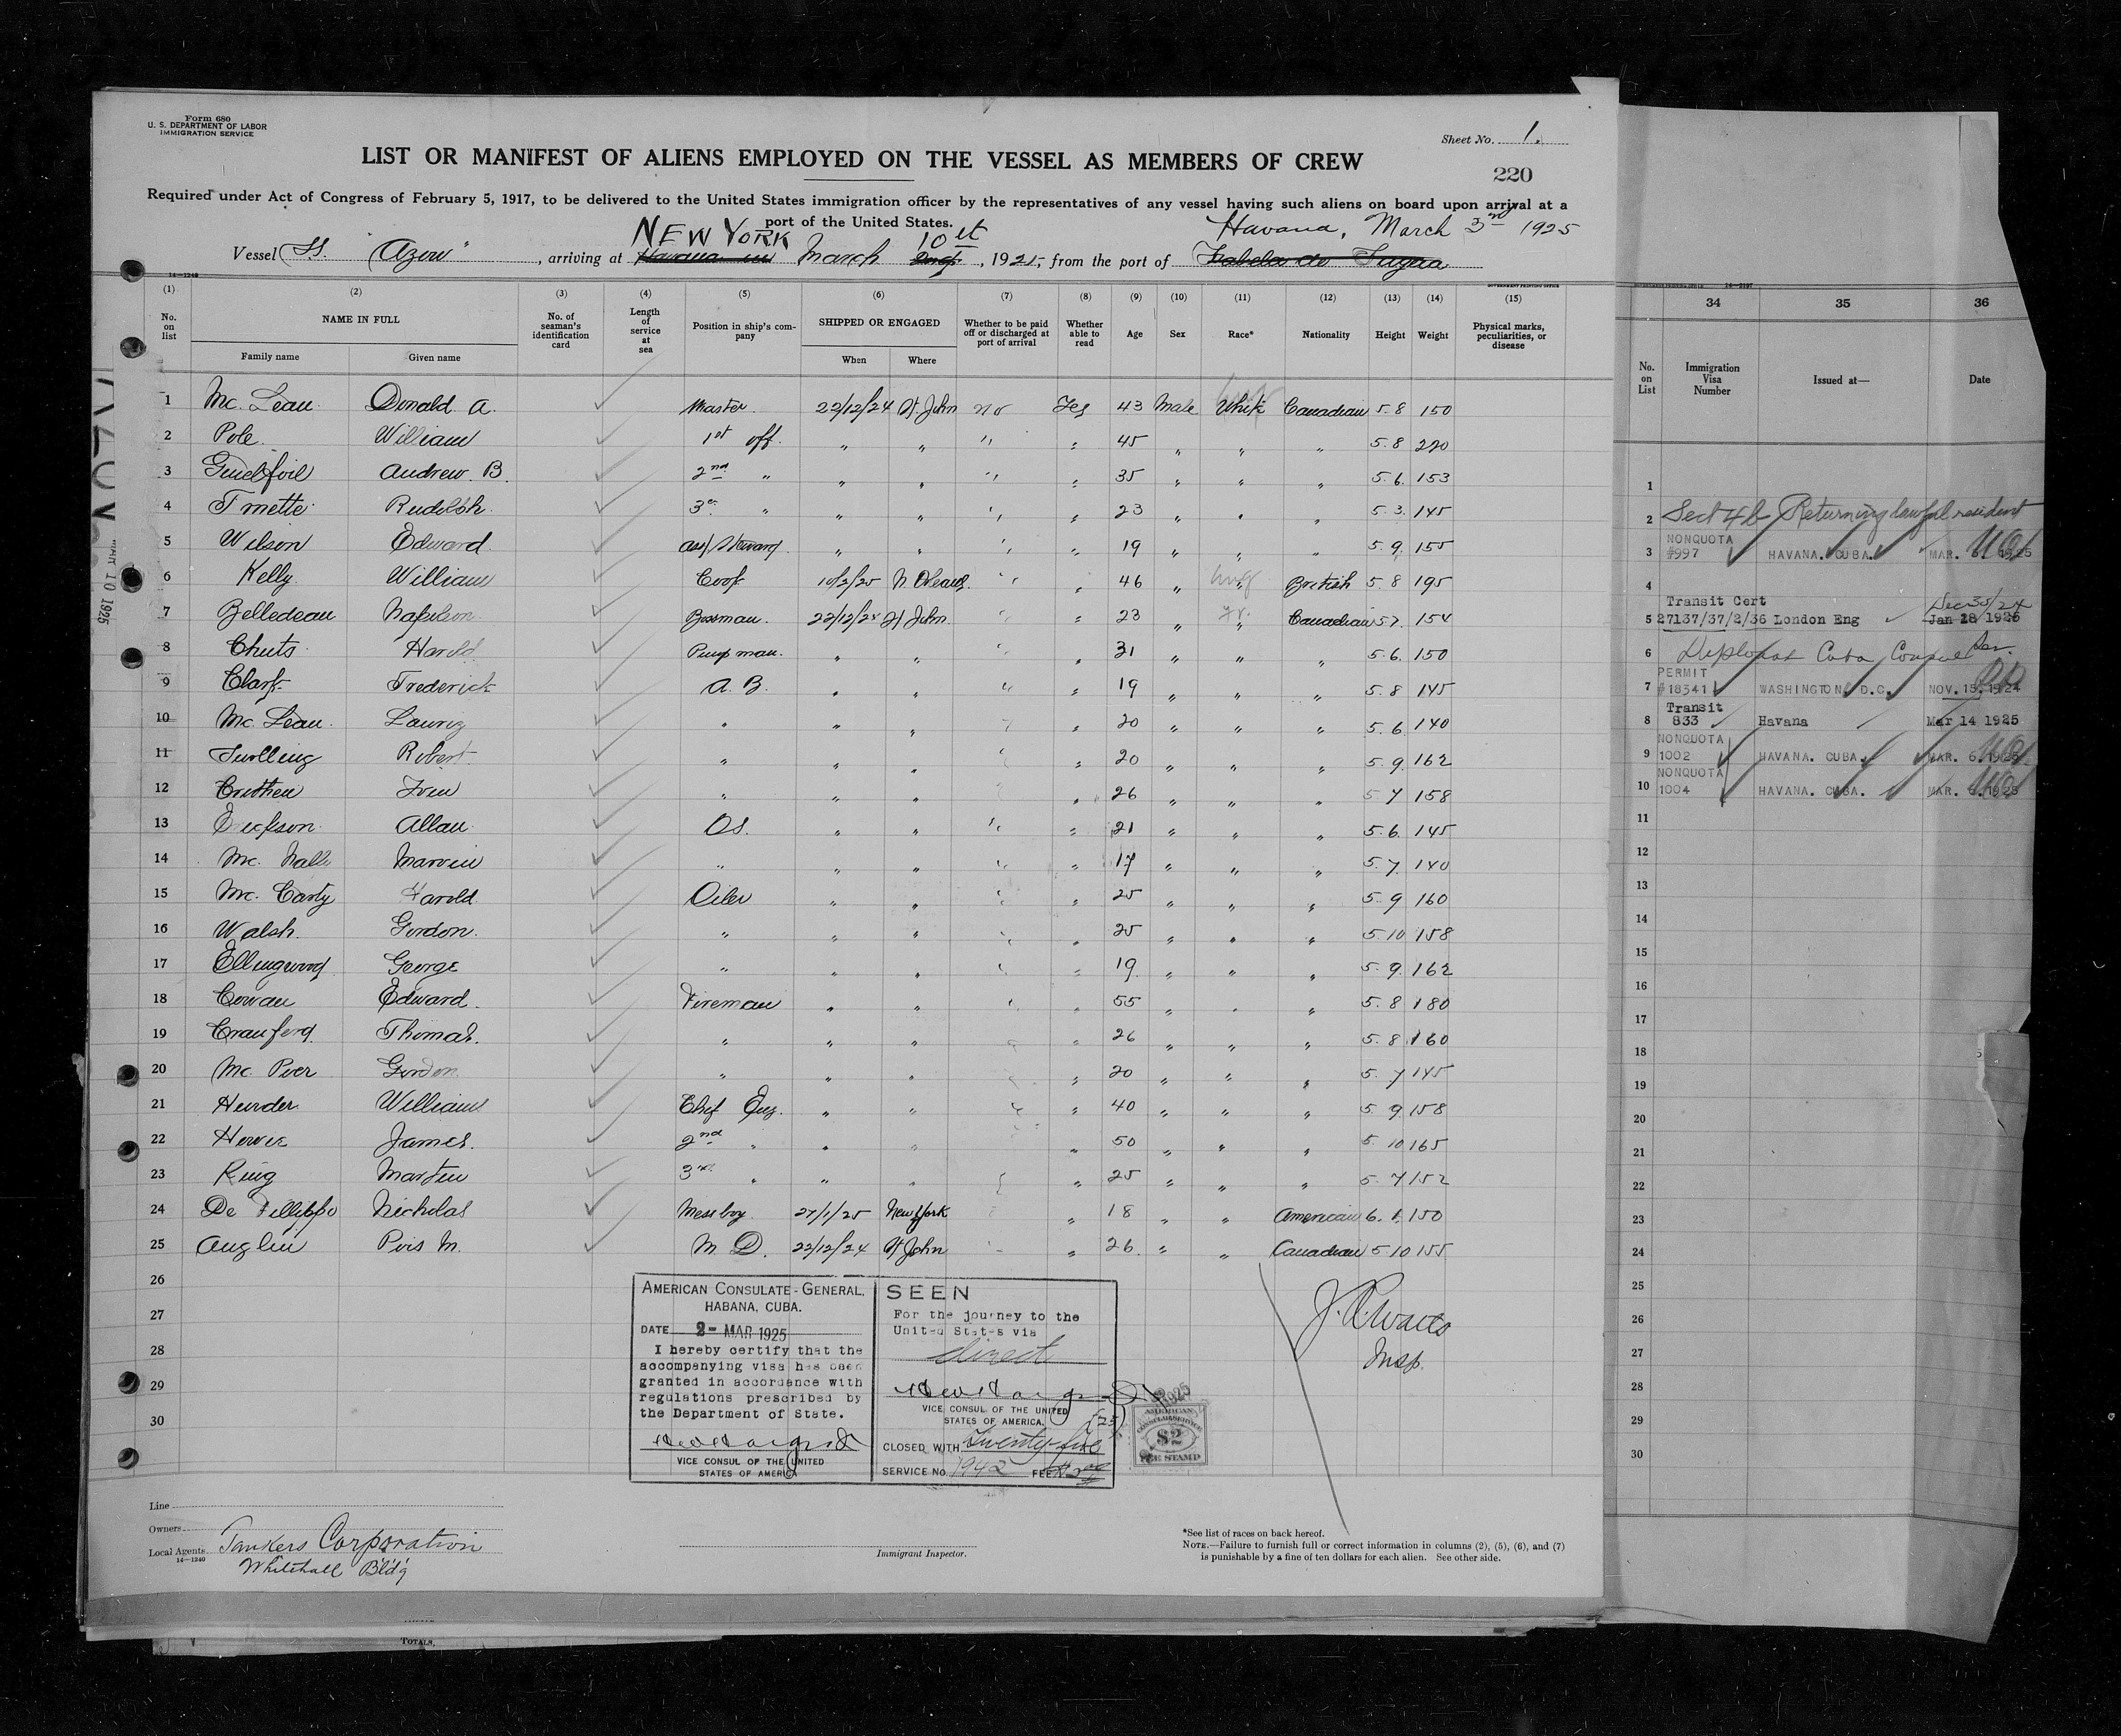 Form 680
U. S. DEPARTMENT OF LABOR
IMMIGRATION SERVICE
Sheet No. 1.
LIST OR MANIFEST OF ALIENS EMPLOYED ON THE VESSEL AS MEMBERS OF CREW
220
Required under Act of Congress of February 5, 1917, to be delivered to the United States immigration officer by the representatives of any vessel having such aliens on board upon arrival at a
port of the United States.
NEW YORK 10 Havana, March 3rd 1925
Vessel SS. "Azov", arriving at Havana March, 1925, from the port of Isabela de Sagua
14—1240
(1) (2) (3) (4) (5) (6) (7) (8) (9) (10) (11) (12) (13) (14) (15)
No. on list NAME IN FULL Family name Given name No. of seaman's identification card Length of service at sea Position in ship's company SHIPPED OR ENGAGED When Where Whether to be paid off or discharged at port of arrival Whether able to read Age Sex Race* Nationality Height Weight Physical marks, peculiarities, or disease
1 Mc. Lean Donald A. Master. 22/12/24 St. John no Yes 43 Male White Canadian 5.8 150
2 Pole William 1st off. " " " " 45 " " " 5.8 220
3 Andrew. B. 2nd " " " " " 35 " " " 5.6. 153
4 Rudolph. 3rd " " " " " 23 " " " 5.3. 145
5 Wilson Edward. Steward " " " " 19 " " " 5.9. 155
6 Kelly William Cook 10/2/25 N. Orleans. " " 46 " " British 5.8 195
7 Belledeau Napoleon 22/12/24 St John. " " 23 " " Canadian 5 7. 154
8 Chuts Harold Pump man. " " " 31 " " " 5.6. 150
9 Clark Frederick A. B. " " " " 19 " " " 5.8 145
10 Mc. Lean. " " " " 20 " " " 5.6 140
11 Robert " " " " 20 " " " 5.9. 162
12 " " " " 26 " " " 5.7 158
13 Erickson Allan OS. " " " " 21 " " " 5.6. 145
14 Mc. Marvin " " " " " 17 " " " 5.7. 140
15 Mc. Carty Harold. Oiler " " " " 25 " " " 5.9 160
16 Walsh. Gordon. " " " " " 25 " " " 5.10 158
17 Ellingwood George " " " " " 19 " " " 5.9. 162
18 Cowan Edward. Fireman " " " " 55 " " " 5.8 180
19 Crauford Thomas. " " " " " 26 " " " 5.8 160
20 Mc. Gordon " " " " " 20 " " " 5.7 145
21 William Chief Eng. " " " " 40 " " " 5.9 158
22 Howie James. 2nd " " " " 50 " " " 5.10 165
23 King Martin 3rd " " " " " 25 " " " 5.7 152
24 De Fillippo Nicholas Mess boy 27/1/25 New York " 18 " " American 6.1. 150
25 Anglin M. M. D. 22/12/24 St John " 26. " " Canadian 5.10 155
26
27
28
29
30
AMERICAN CONSULATE-GENERAL,
HABANA, CUBA.
DATE 2- MAR 1925
I hereby certify that the
accompanying visa has been
granted in accordance with
regulations prescribed by
the Department of State.
VICE CONSUL OF THE UNITED
STATES OF AMERICA
SEEN
For the journey to the
United States via
direct
VICE CONSUL OF THE UNITED
STATES OF AMERICA.
(25)
CLOSED WITH Twenty-five
SERVICE NO. 1942 FEE
AMERICAN
CONSULAR SERVICE
$2
FEE STAMP
Insp.
Line
Owners
Local Agents Tankers Corporation
14—1240
Whitehall Bld'g
Immigrant Inspector.
*See list of races on back hereof.
NOTE.—Failure to furnish full or correct information in columns (2), (5), (6), and (7)
is punishable by a fine of ten dollars for each alien. See other side.
TOTALS,
MAR 10 1925
34 35 36
No. on List Immigration Visa Number Issued at— Date
1
2 Sect 4b Returning lawful resident
3 NONQUOTA #997 HAVANA. CUBA. MAR. 6 1925
4
5 Transit Cert 27137/37/2/36 London Eng Dec 30/24 Jan 28 1925
6 Diplomat Cuba Consul
7 PERMIT #18341 WASHINGTON, D.C. NOV. 15. 1924
8 Transit 833 Havana Mar 14 1925
9 NONQUOTA 1002 HAVANA. CUBA. MAR. 6. 1925
10 NONQUOTA 1004 HAVANA. CUBA. MAR. 1925
11
12
13
14
15
16
17
18
19
20
21
22
23
24
25
26
27
28
29
30